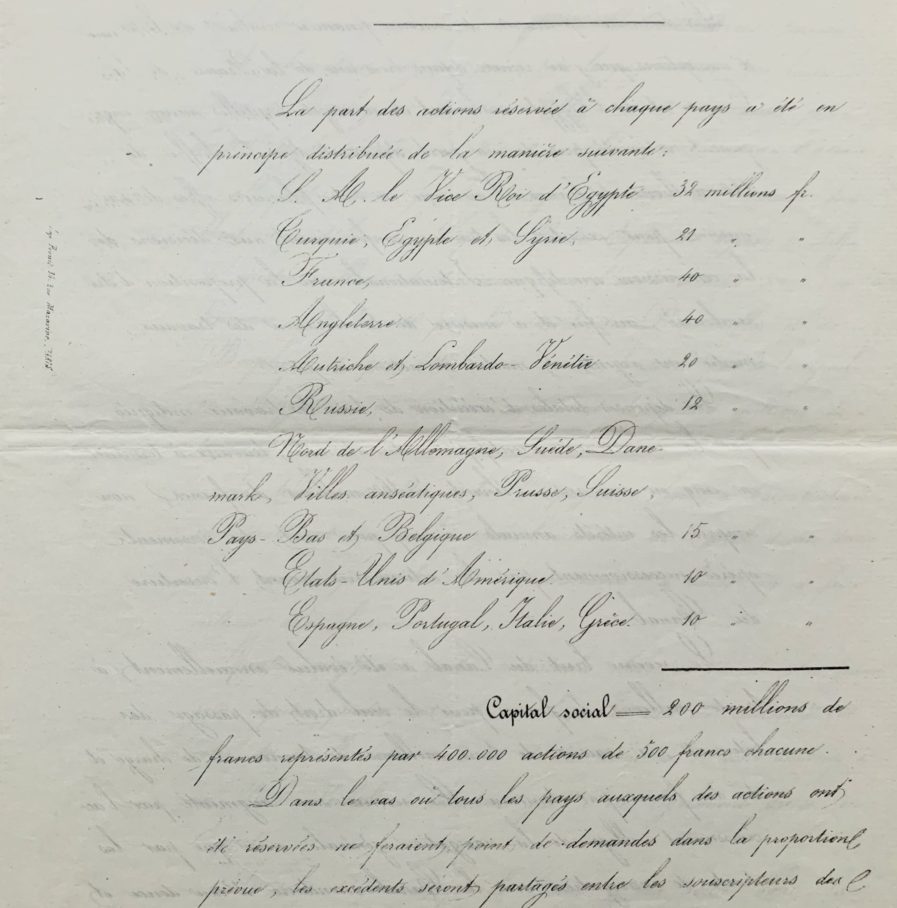 La part des actions réservée à chaque pays a été en
principe distribuée de la manière suivante:
S. M. le Vice Roi d'Égypte 32 millions fr.
Turquie, Égypte et Syrie, 21 " "
France, 40 " "
Angleterre 40 " "
Autriche et Lombardo-Vénétie 20 " "
Russie, 12 " "
Nord de l'Allemagne, Suède, Dane-
mark, Villes anséatiques, Prusse, Suisse,
Pays-Bas et Belgique 15 " "
États-Unis d'Amérique 10 " "
Espagne, Portugal, Italie, Grèce. 10 " "
Capital social = 200 millions de
francs représentés par 400.000 actions de 500 francs chacune.
Dans le cas où tous les pays auxquels des actions ont
été réservées ne feraient point de demandes dans la proportion
prévue, les excédents seront partagés entre les souscripteurs des